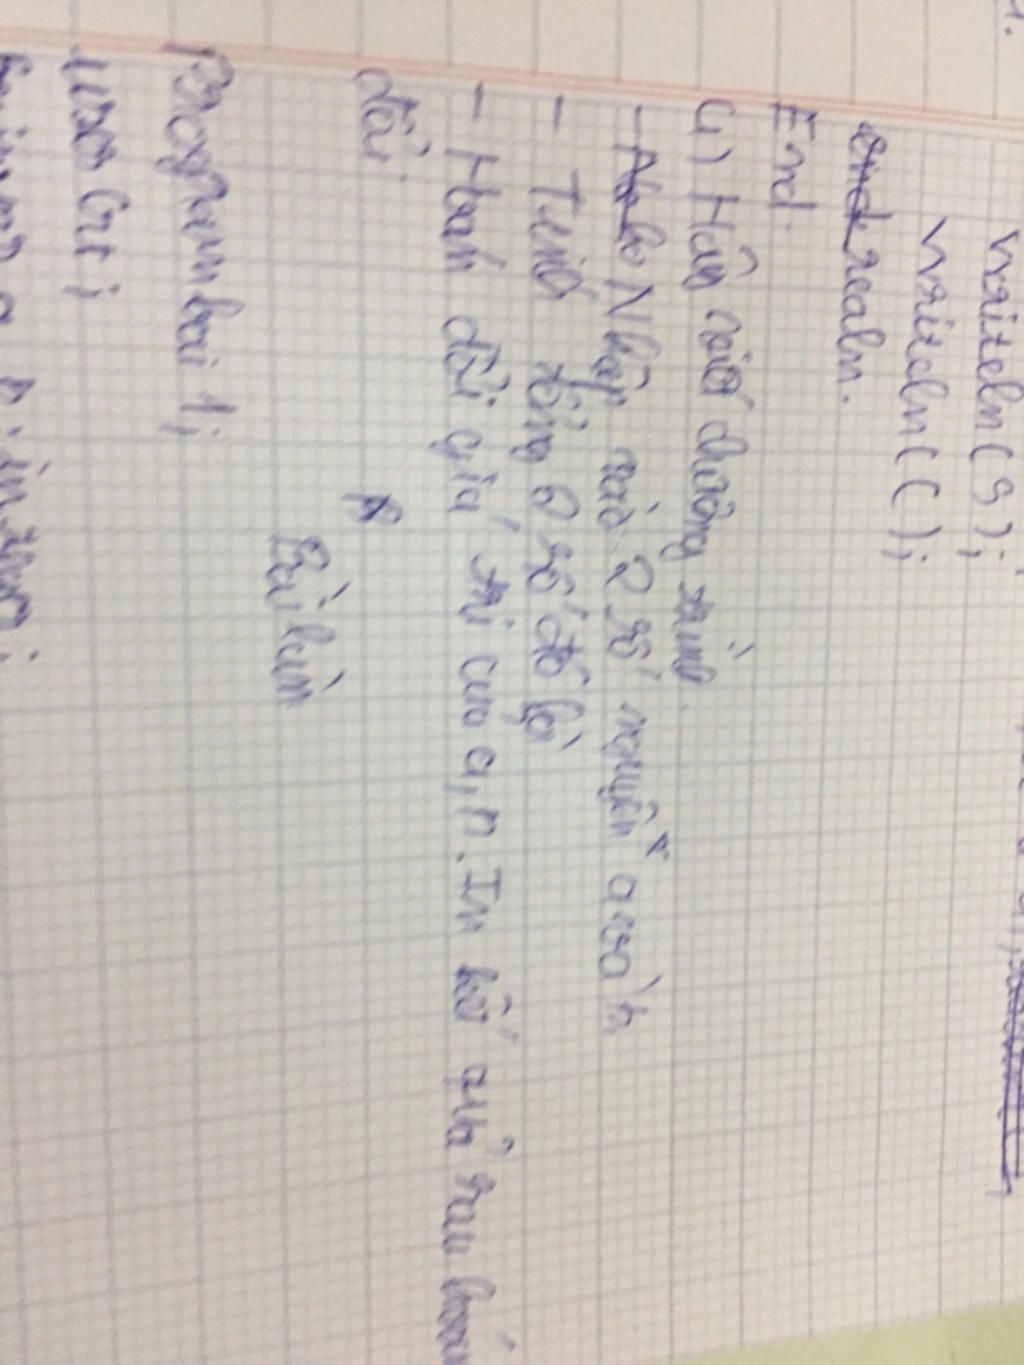 writeln(S);
writeln(C);
readln.
End.
4) Hãy viết chương trình.
- Nhập vào 2 số nguyên a và n
- Tính tổng 2 số đó lại
- Hoán đổi giá trị của a, n. In kết quả sau hoán
đổi.
Bài làm
Program bai 1;
uses crt;